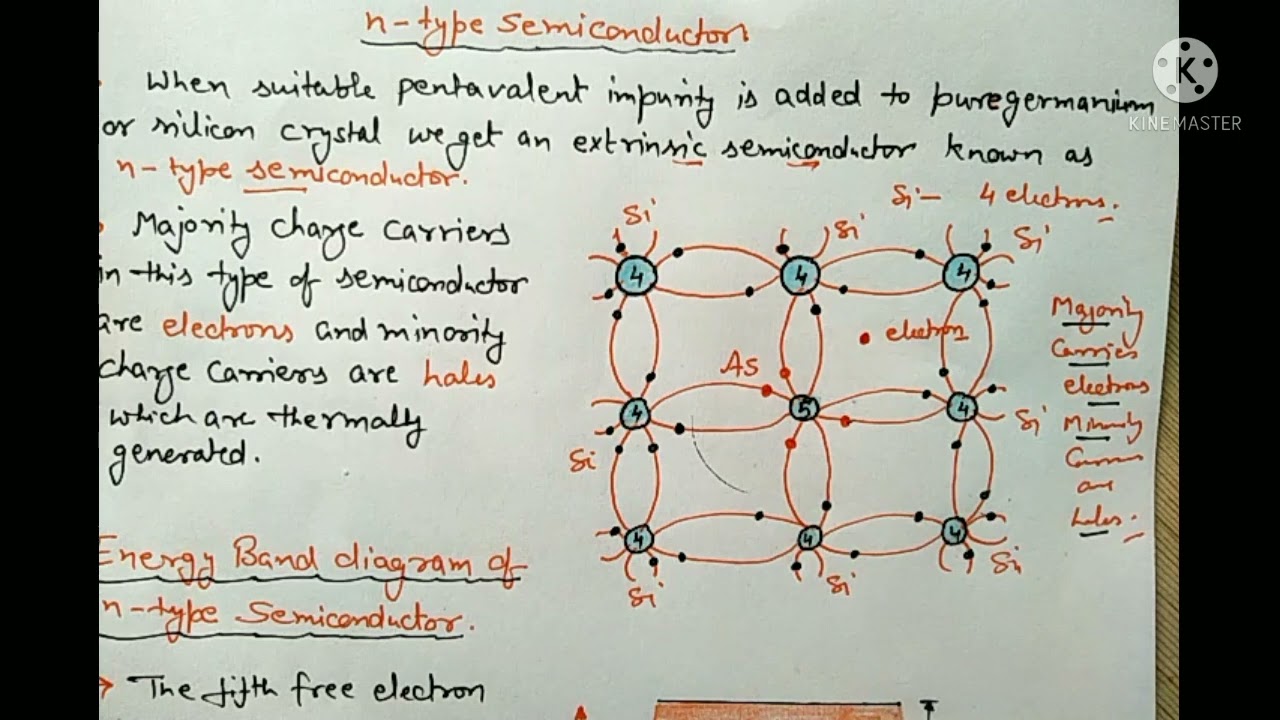 n-type semiconductor
K
KINEMASTER
When suitable pentavalent impurity is added to pure germanium
or silicon crystal we get an extrinsic semiconductor known as
n-type semiconductor.
Majority charge carriers
in this type of semiconductor
are electrons and minority
charge carriers are holes
which are thermally
generated.
Si - 4 electrons.
Si
Si
Si
4
4
4
electron
As
4
5
4
Si
Si
4
4
4
Si
Si
Si
Majority
Carries
electrons
Minority
are
holes.
Energy Band diagram of
n-type Semiconductor.
→ The fifth free electron